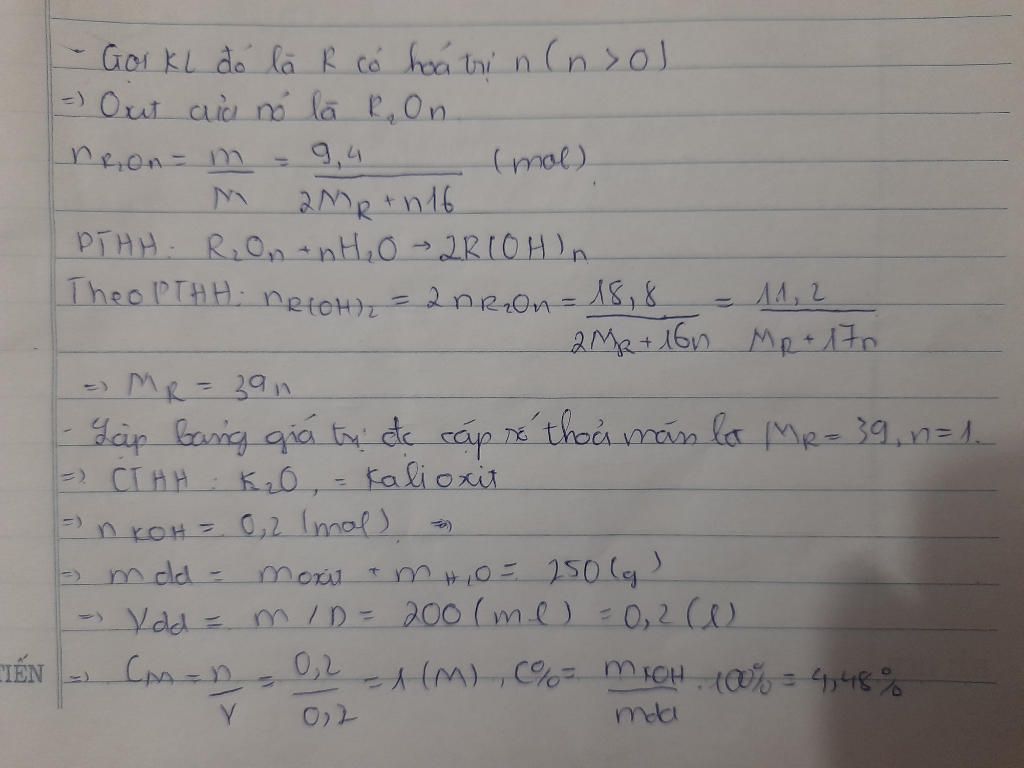 - Gọi KL đó là R có hoá trị n (n > 0)
=) Oxit của nó là R₂On
nR₂On = m/M = 9,4/(2MR + n16) (mol)
PTHH: R₂On + nH₂O → 2R(OH)n
Theo PTHH: nR(OH)₂ = 2nR₂On = 18,8/(2MR + 16n) = 11,2/(MR + 17n)
=) MR = 39n
- Lập bảng giá trị đc cặp số thoả mãn là MR = 39, n = 1.
=) CTHH: K₂O, = Kali oxit
=) nKOH = 0,2 (mol). =)
=) mdd = moxit + mH₂O = 250 (g)
=) Vdd = m / D = 200 (ml) = 0,2 (l)
TIẾN =) CM = n/V = 0,2/0,2 = 1 (M), C% = mKOH/mdd . 100% = 4,48%